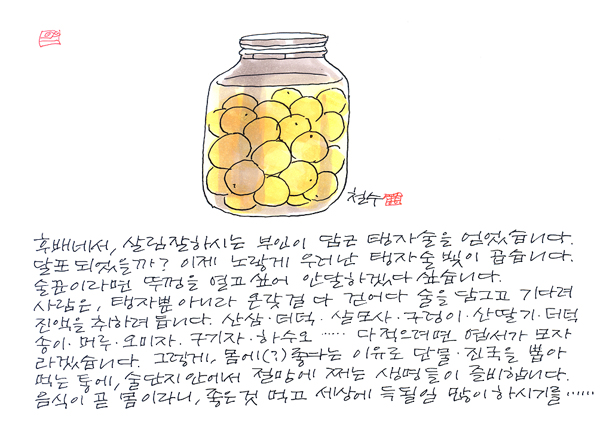 철수
후배네서, 살림잘하시는 부인이 담근 탱자술을 얻었습니다.
달포 되었을까? 이제 노랗게 우러난 탱자술빛이 곱습니다.
술꾼이라면 뚜껑을 열고싶어 안달하겠다 싶습니다.
사람은, 탱자뿐 아니라 온갖걸 다 걷어다 술을 담그고 기다려
진액을 취하려 듭니다. 산삼·더덕·살모사·구렁이·산딸기·더덕
송이·머루·오미자·구기자·하수오 …… 다적으려면 엽서가 모자
라겠습니다. 그렇게, 몸에(?)좋다는 이유로 단물·진국을 뽑아
먹는 통에, 술단지안에서 절망에 쩌는 생명들이 즐비합니다.
음식이 곧 몸이라니, 좋은것 먹고 세상에 득될일 많이하시기를……